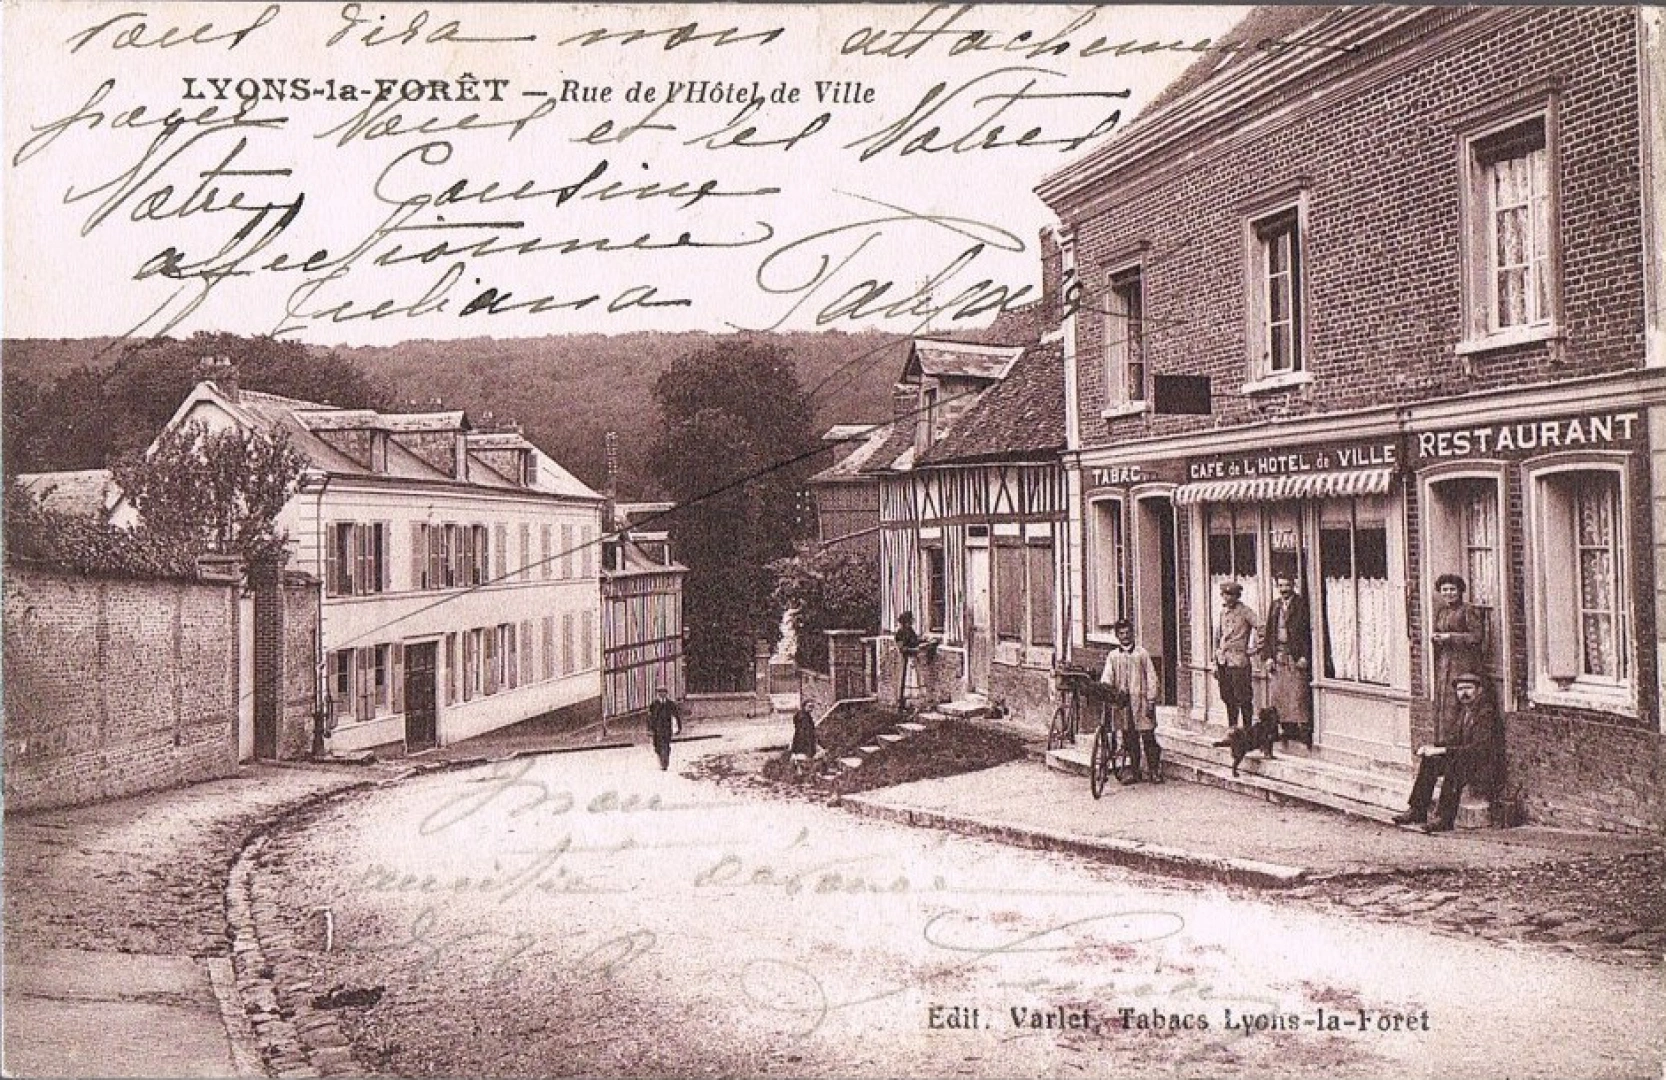 vous dira mon attachement
LYONS-la-FORÊT — Rue de l'Hôtel de Ville
pour Vous et les Votres
Votre Cousine
affectionnée
Juliana
TABAC
CAFE de L'HOTEL de VILLE
RESTAURANT
mon
amitié
Edit. Varlet, Tabacs Lyons-la-Forêt